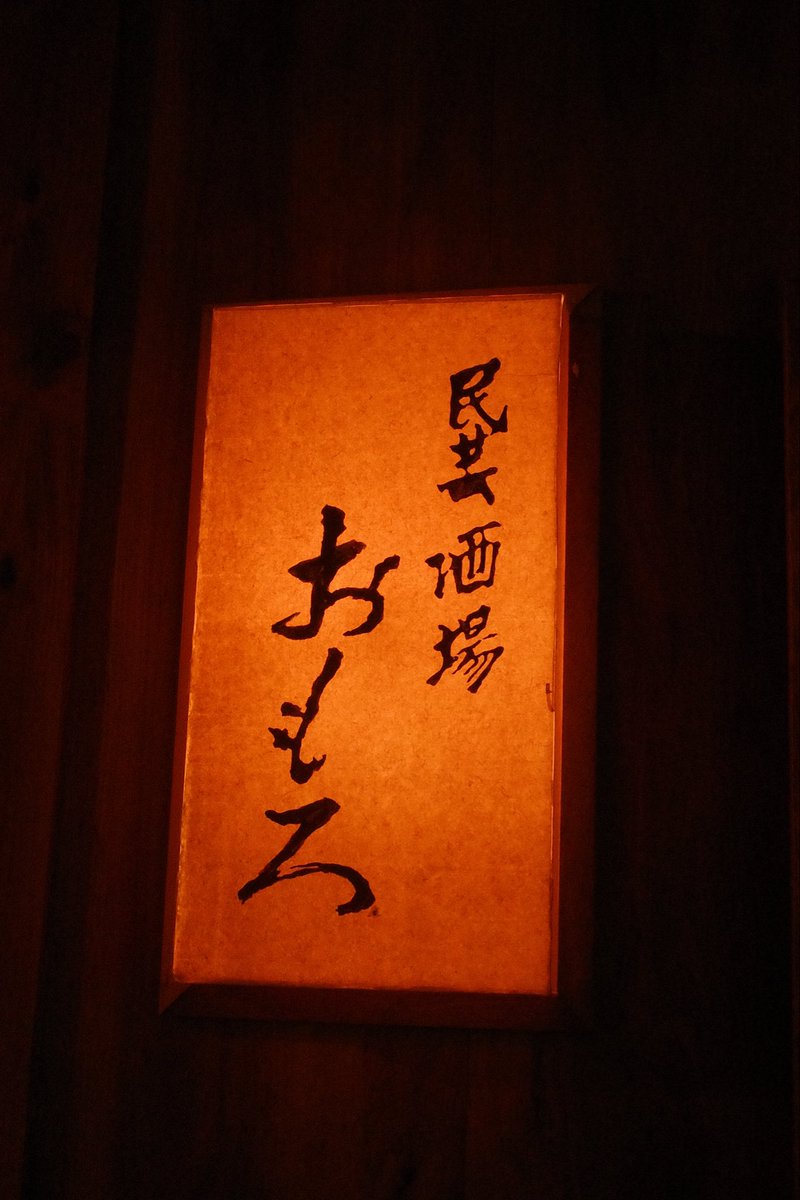 民芸酒場
おもろ